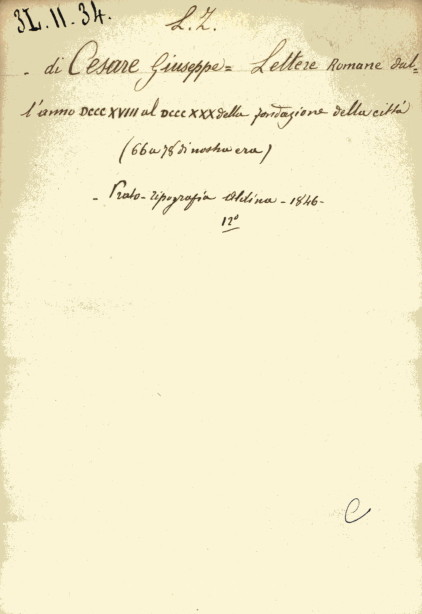 3L.11.34.
L.Z.
- di Cesare Giuseppe = Lettere Romane dal=
l'anno DCCCXVIII al DCCCXXX della fondazione della città
(66 a 78 di nostra era)
- Prato - tipografia Aldina - 1846 -
12º
C